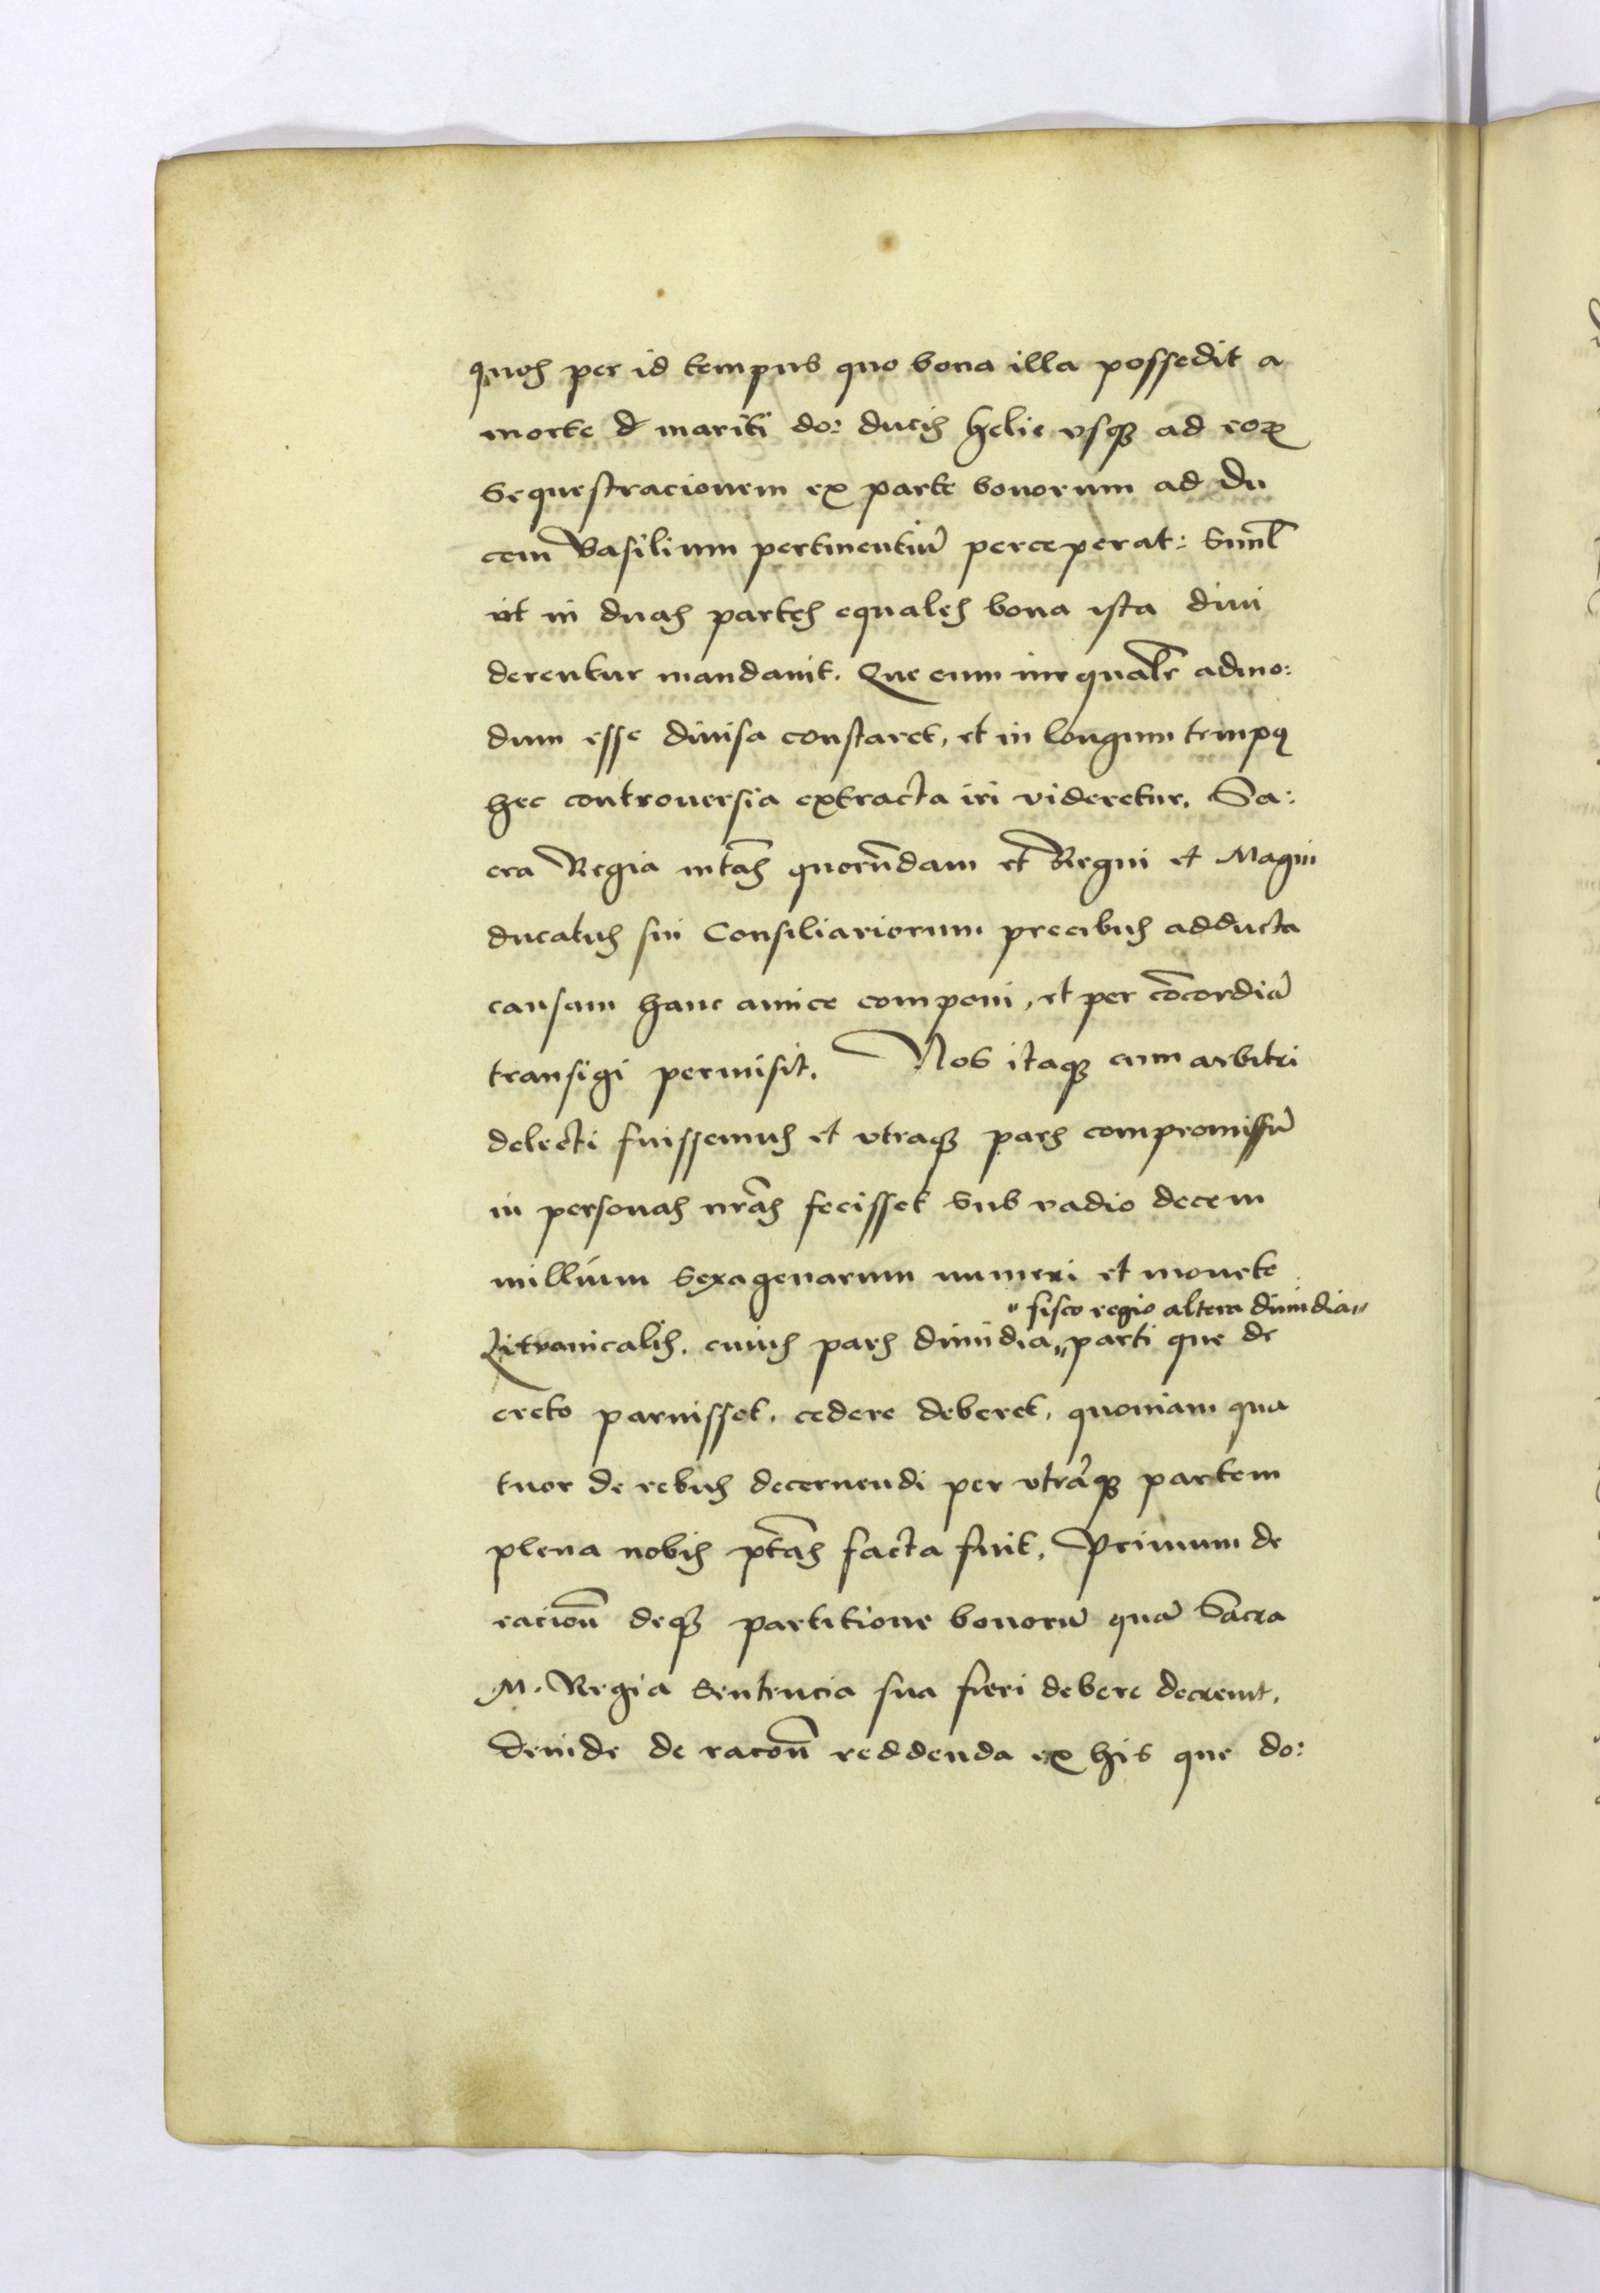 quos per id tempus quo bona illa possedit a
morte d mariti do: ducis Helie vsq3 ad eoꝝ
sequestracionem ex parte bonorum ad du
cem Basilium pertinentiū perceperat: Siml̄
ut in duas partes equales bona ista diui
derentur mandauit. Que cum inequalr̄ admo:
dum esse diuisa constaret, et in longum tempꝯ
hec controuersia extracta iri videretur, Sa:
cra Regia mtās quorūdam et Regni et Magni
ducatus sui Consiliariorum precibus adducta
causam hanc amice componi, et per cōcordiā
transigi permisit. Nos itaq3 cum arbitri
delecti fuissemus et vtraq3 pars compromissū
in personas nr̄as fecisset sub vadio decem
millium sexagenarum numeri et monete
"fisco regio altera dimidia"
Litvanicalis, cuius pars dimidia " parti que de
creto paruisset, cedere deberet, quoniam qua
tuor de rebus decernendi per vtrāq3 partem
plena nobis ptās facta fuit, Primum de
racioñ deq3 partitione bonorū quā Sacra
M. Regia Sentencia sua fieri debere decreuit,
deinde de racoñ reddenda ex his que do: